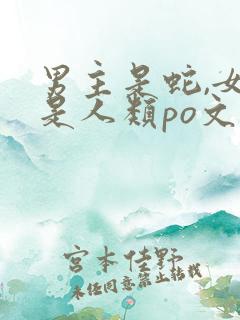 男主是蛇,女
是人类po文
宫本佳野
未经同意禁止转载